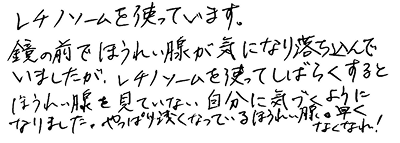 レチノソームを使っています。
鏡の前でほうれい腺が気になり落ち込んで
いましたが、レチノソームを使ってしばらくすると
ほうれい腺を見ていない自分に気づくように
なりました。やっぱり浅くなっているほうれい腺。早く
なくなれ!